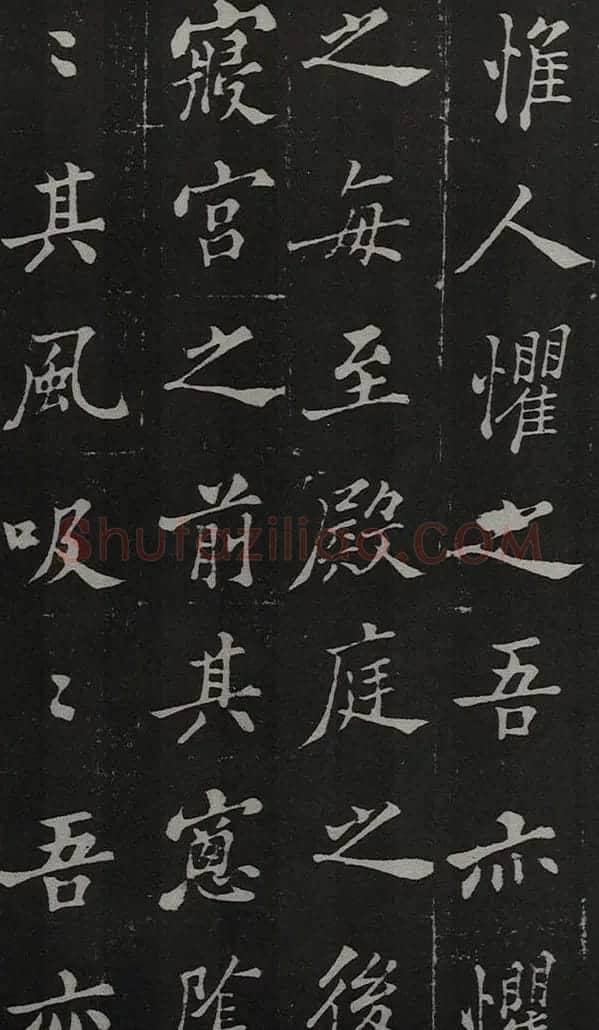 惟人懼之吾亦懼
之每至殿庭之後
寢宫之前其窻陰
〻其風吸〻吾亦
Shufaziliao.COM